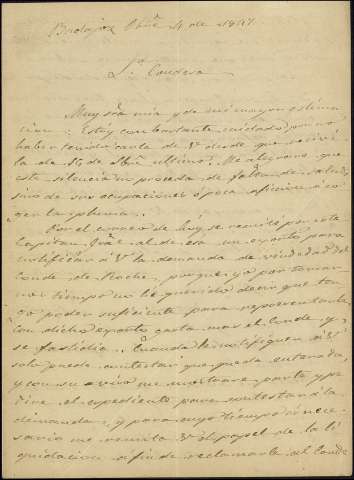 Badajoz 4 de 1841
Sra. Condesa
Muy Sra mia y de mi mayor estima
cion: Estoy con bastante cuidado por no
haber tenido carta de V desde que recivi
la de 16 de ultimo. Me alegrare que
este silencio no proceda de falta de salud,
sino de sus ocupaciones ó poca aficion á co
ger la pluma.
Por el correo de hoy se remitió por este
Capitan Gral. al de esa un exorto para
notificar á V la demanda de viudedad del
Conde de Roche, porque yo por tomar
nos tiempo no he querido decir que ten
go poder suficiente para representarla
con dicho exorto carta mas el Conde y
se fastidia. Cuando le notifiquen á V
solo puede contestar que queda enterada,
y con su aviso me mostrare parte y pe
dire el expediente para contestar á la
demanda, y para cuyo tiempo es nece
sario me remita V el papel de la li
quidacion a fin de reclamarle al Conde